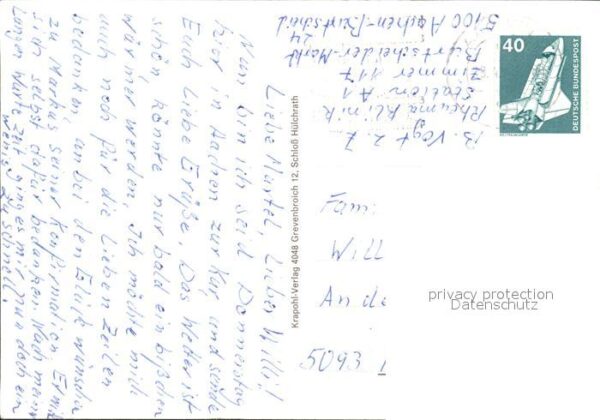 Liebe Martel, Lieber Willi!
Nun bin ich seid Donnerstag
hier in Aachen zur Kur und sende
Euch Liebe Grüße, Das Wetter ist
schön könnte nur bald ein bißchen
wärmer werden, Ich möchte mich
auch noch für die Lieben Zeilen
bedanken, an bei den Glückwünschen
zu Markus seiner Konfirmation Er wird
sich selbst dafür bedanken. Nach meiner
Langen Wartezeit ging es mir zwa doch ein
wenig zu schnell.
Krapohl-Verlag 4048 Grevenbroich 12, Schloß Hülchrath
B. Vogt z. Z
Rheumaklinik
Station A1
Zimmer 117
Burtscheider-Markt
24
5100 Aachen-Burtscheid
40
DEUTSCHE BUNDESPOST
Fam:
Will
An de
5093
privacy protection
Datenschutz